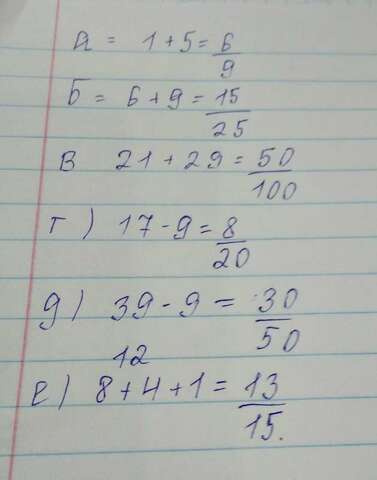 а = 1+5= 6/9
Б = 6+9= 15/25
В 21+29= 50/100
г) 17-9= 8/20
д) 39-9= 30/50
12
е) 8+4+1= 13/15.